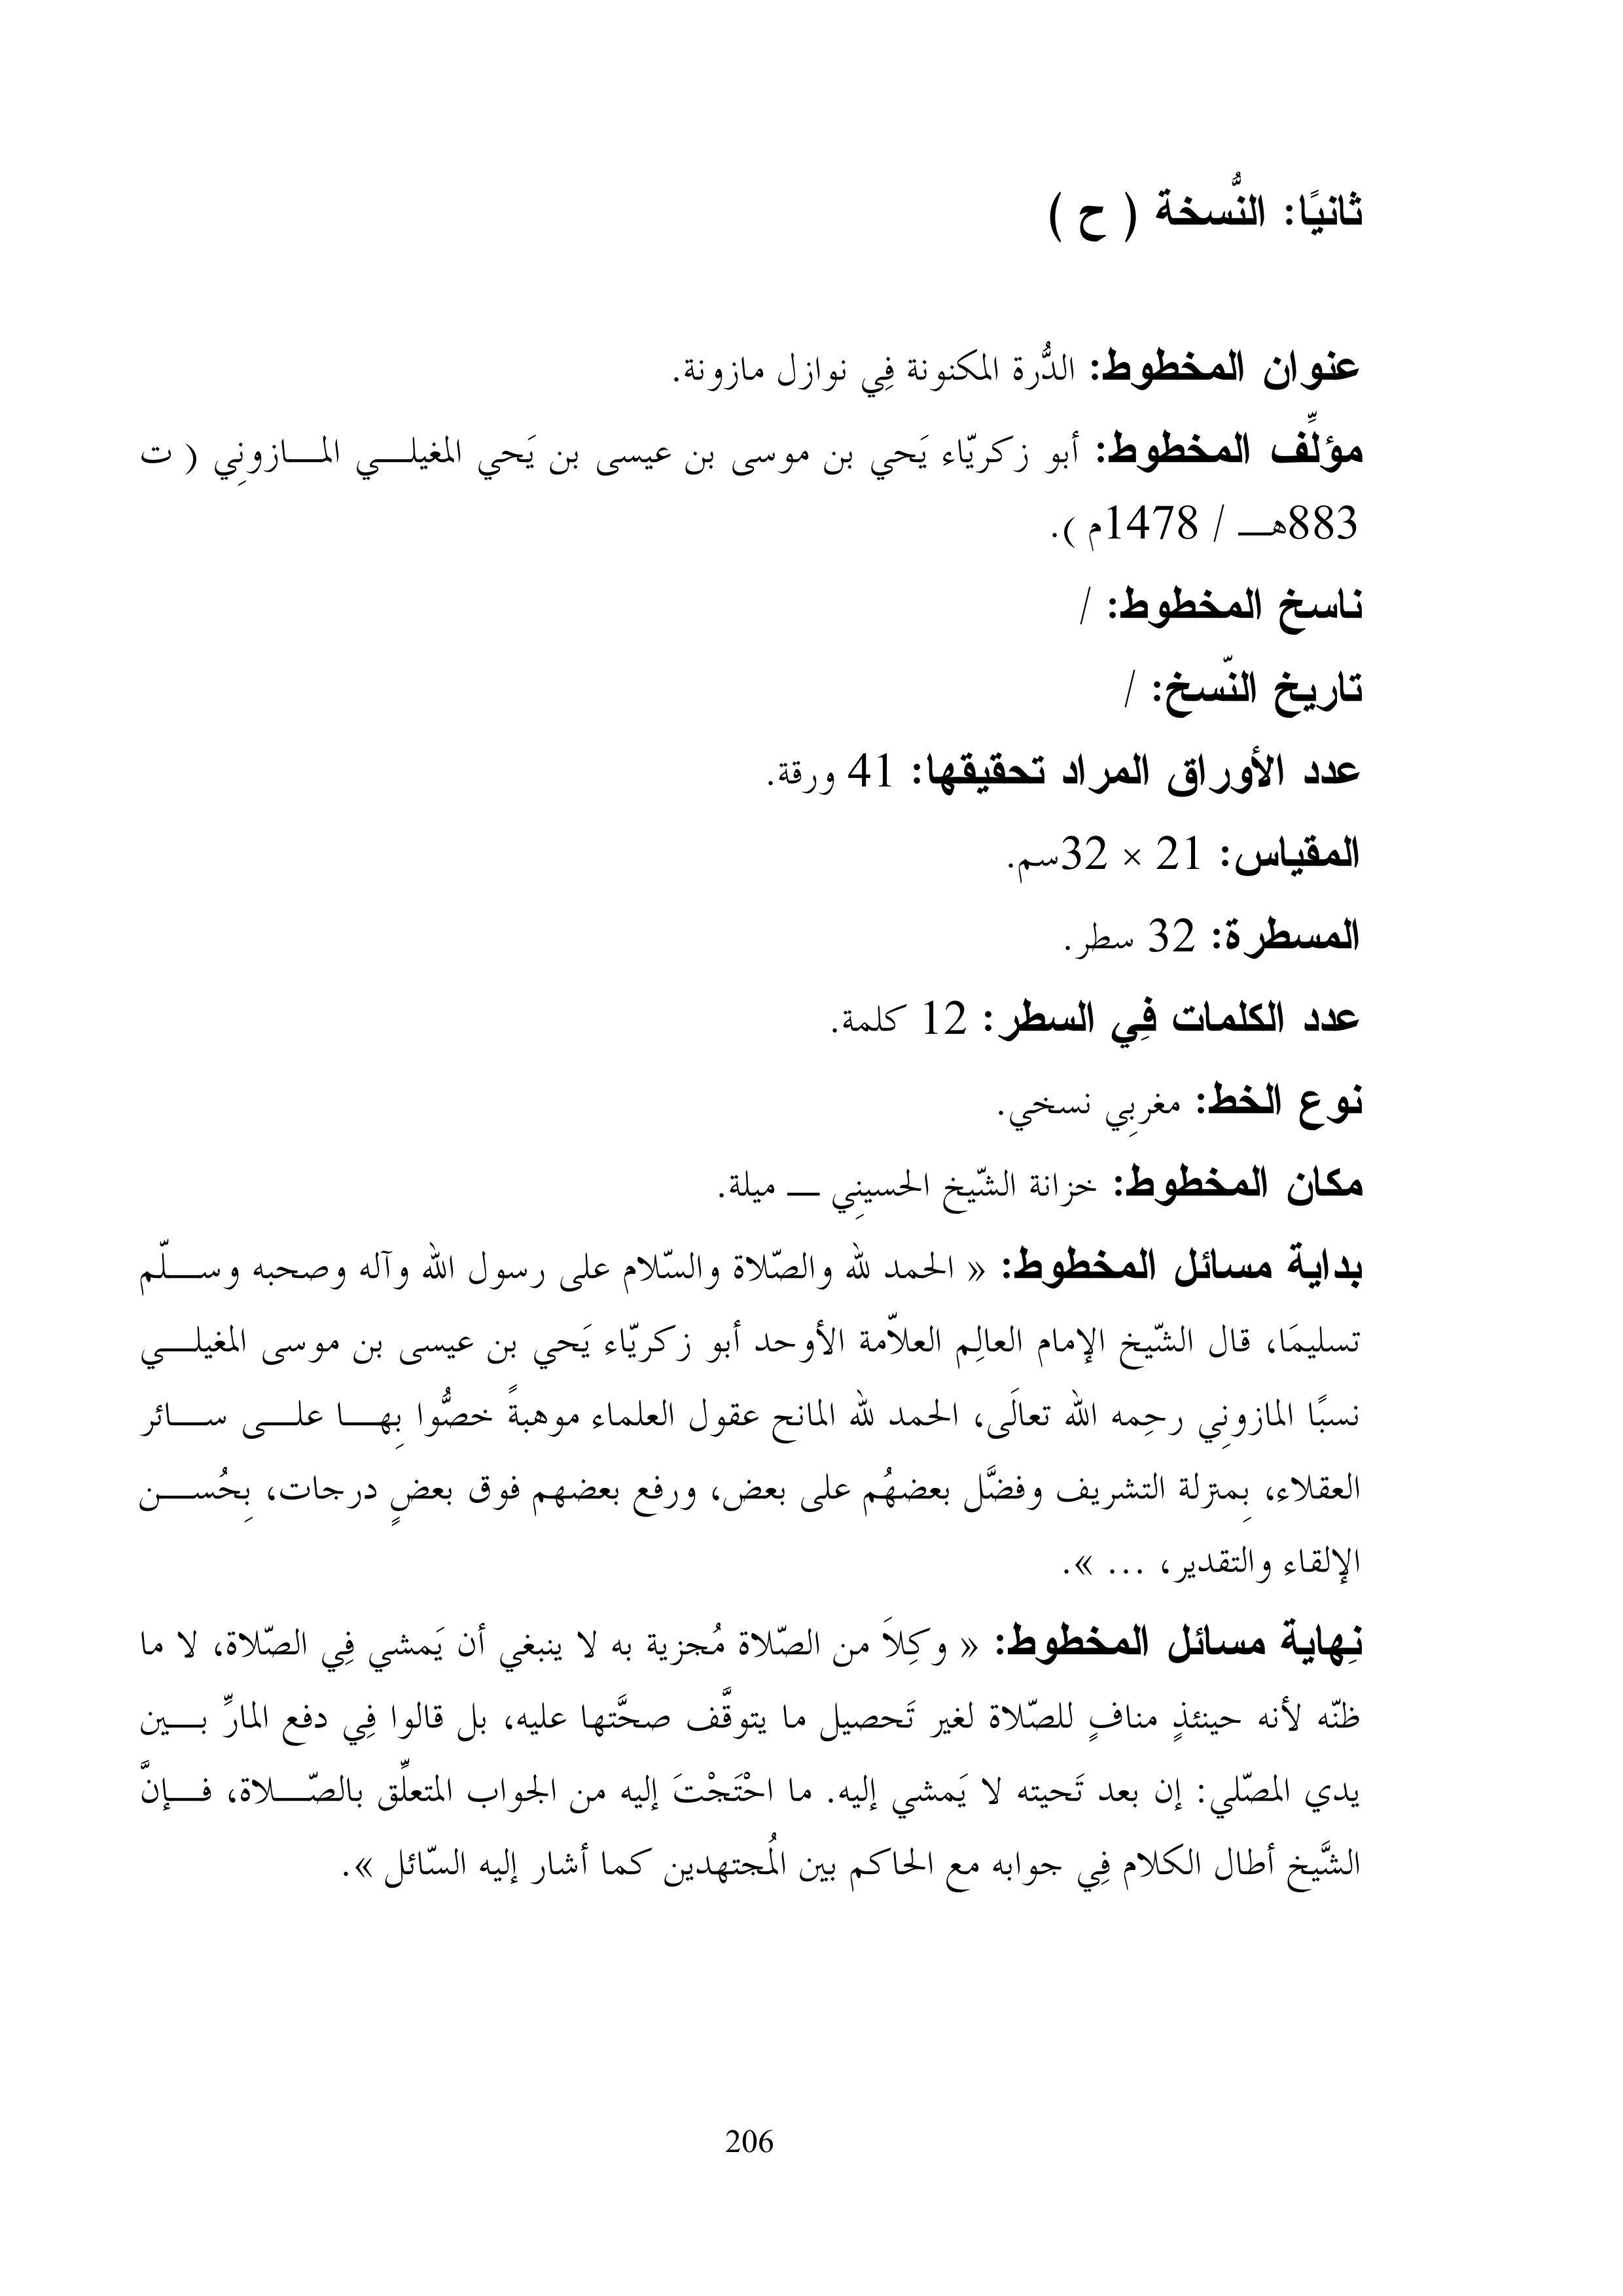 ثانيًا: النُّسخة ( ح )
عنوان المخطوط: الدُّرة المكنونة فِي نوازل مازونة.
مؤلِّف المخطوط: أبو زكريّاء يَحي بن موسى بن عيسى بن يَحي المغيلـــي المـــازونِي ( ت
883هـــ / 1478م ).
ناسخ المخطوط: /
تاريخ النّسخ: /
عدد الأوراق المراد تحقيقها: 41 ورقة.
المقياس: 21 × 32سم.
المسطرة: 32 سطر.
عدد الكلمات فِي السطر: 12 كلمة.
نوع الخط: مغربِي نسخي.
مكان المخطوط: خزانة الشّيخ الحسينِي ـــ ميلة.
بداية مسائل المخطوط: « الحمد لله والصّلاة والسّلام على رسول الله وآله وصحبه وســـلّم
تسليمَا، قال الشّيخ الإمام العالِم العلاّمة الأوحد أبو زكريّاء يَحي بن عيسى بن موسى المغيلـــي
نسبًا المازونِي رحِمه الله تعالَى، الحمد لله المانح عقول العلماء موهبةً خصُّوا بِهـــا علـــى ســـائر
العقلاء، بِمنزلة التشريف وفضَّل بعضهُم على بعض، ورفع بعضهم فوق بعضٍ درجات، بِحُســـن
الإلقاء والتقدير، ... ».
نِهاية مسائل المخطوط: « وكِلاَ من الصّلاة مُجزية به لا ينبغي أن يَمشي فِي الصّلاة، لا ما
ظنّه لأنه حينئذٍ منافٍ للصّلاة لغير تَحصيل ما يتوقَّف صحَّتها عليه، بل قالوا فِي دفع المارِّ بـــين
يدي المصّلي: إن بعد تَحيته لا يَمشي إليه. ما احْتَجْتَ إليه من الجواب المتعلِّق بالصّـــلاة، فـــإنَّ
الشَّيخ أطال الكلام فِي جوابه مع الحاكم بين المُجتهدين كما أشار إليه السّائل ».
206